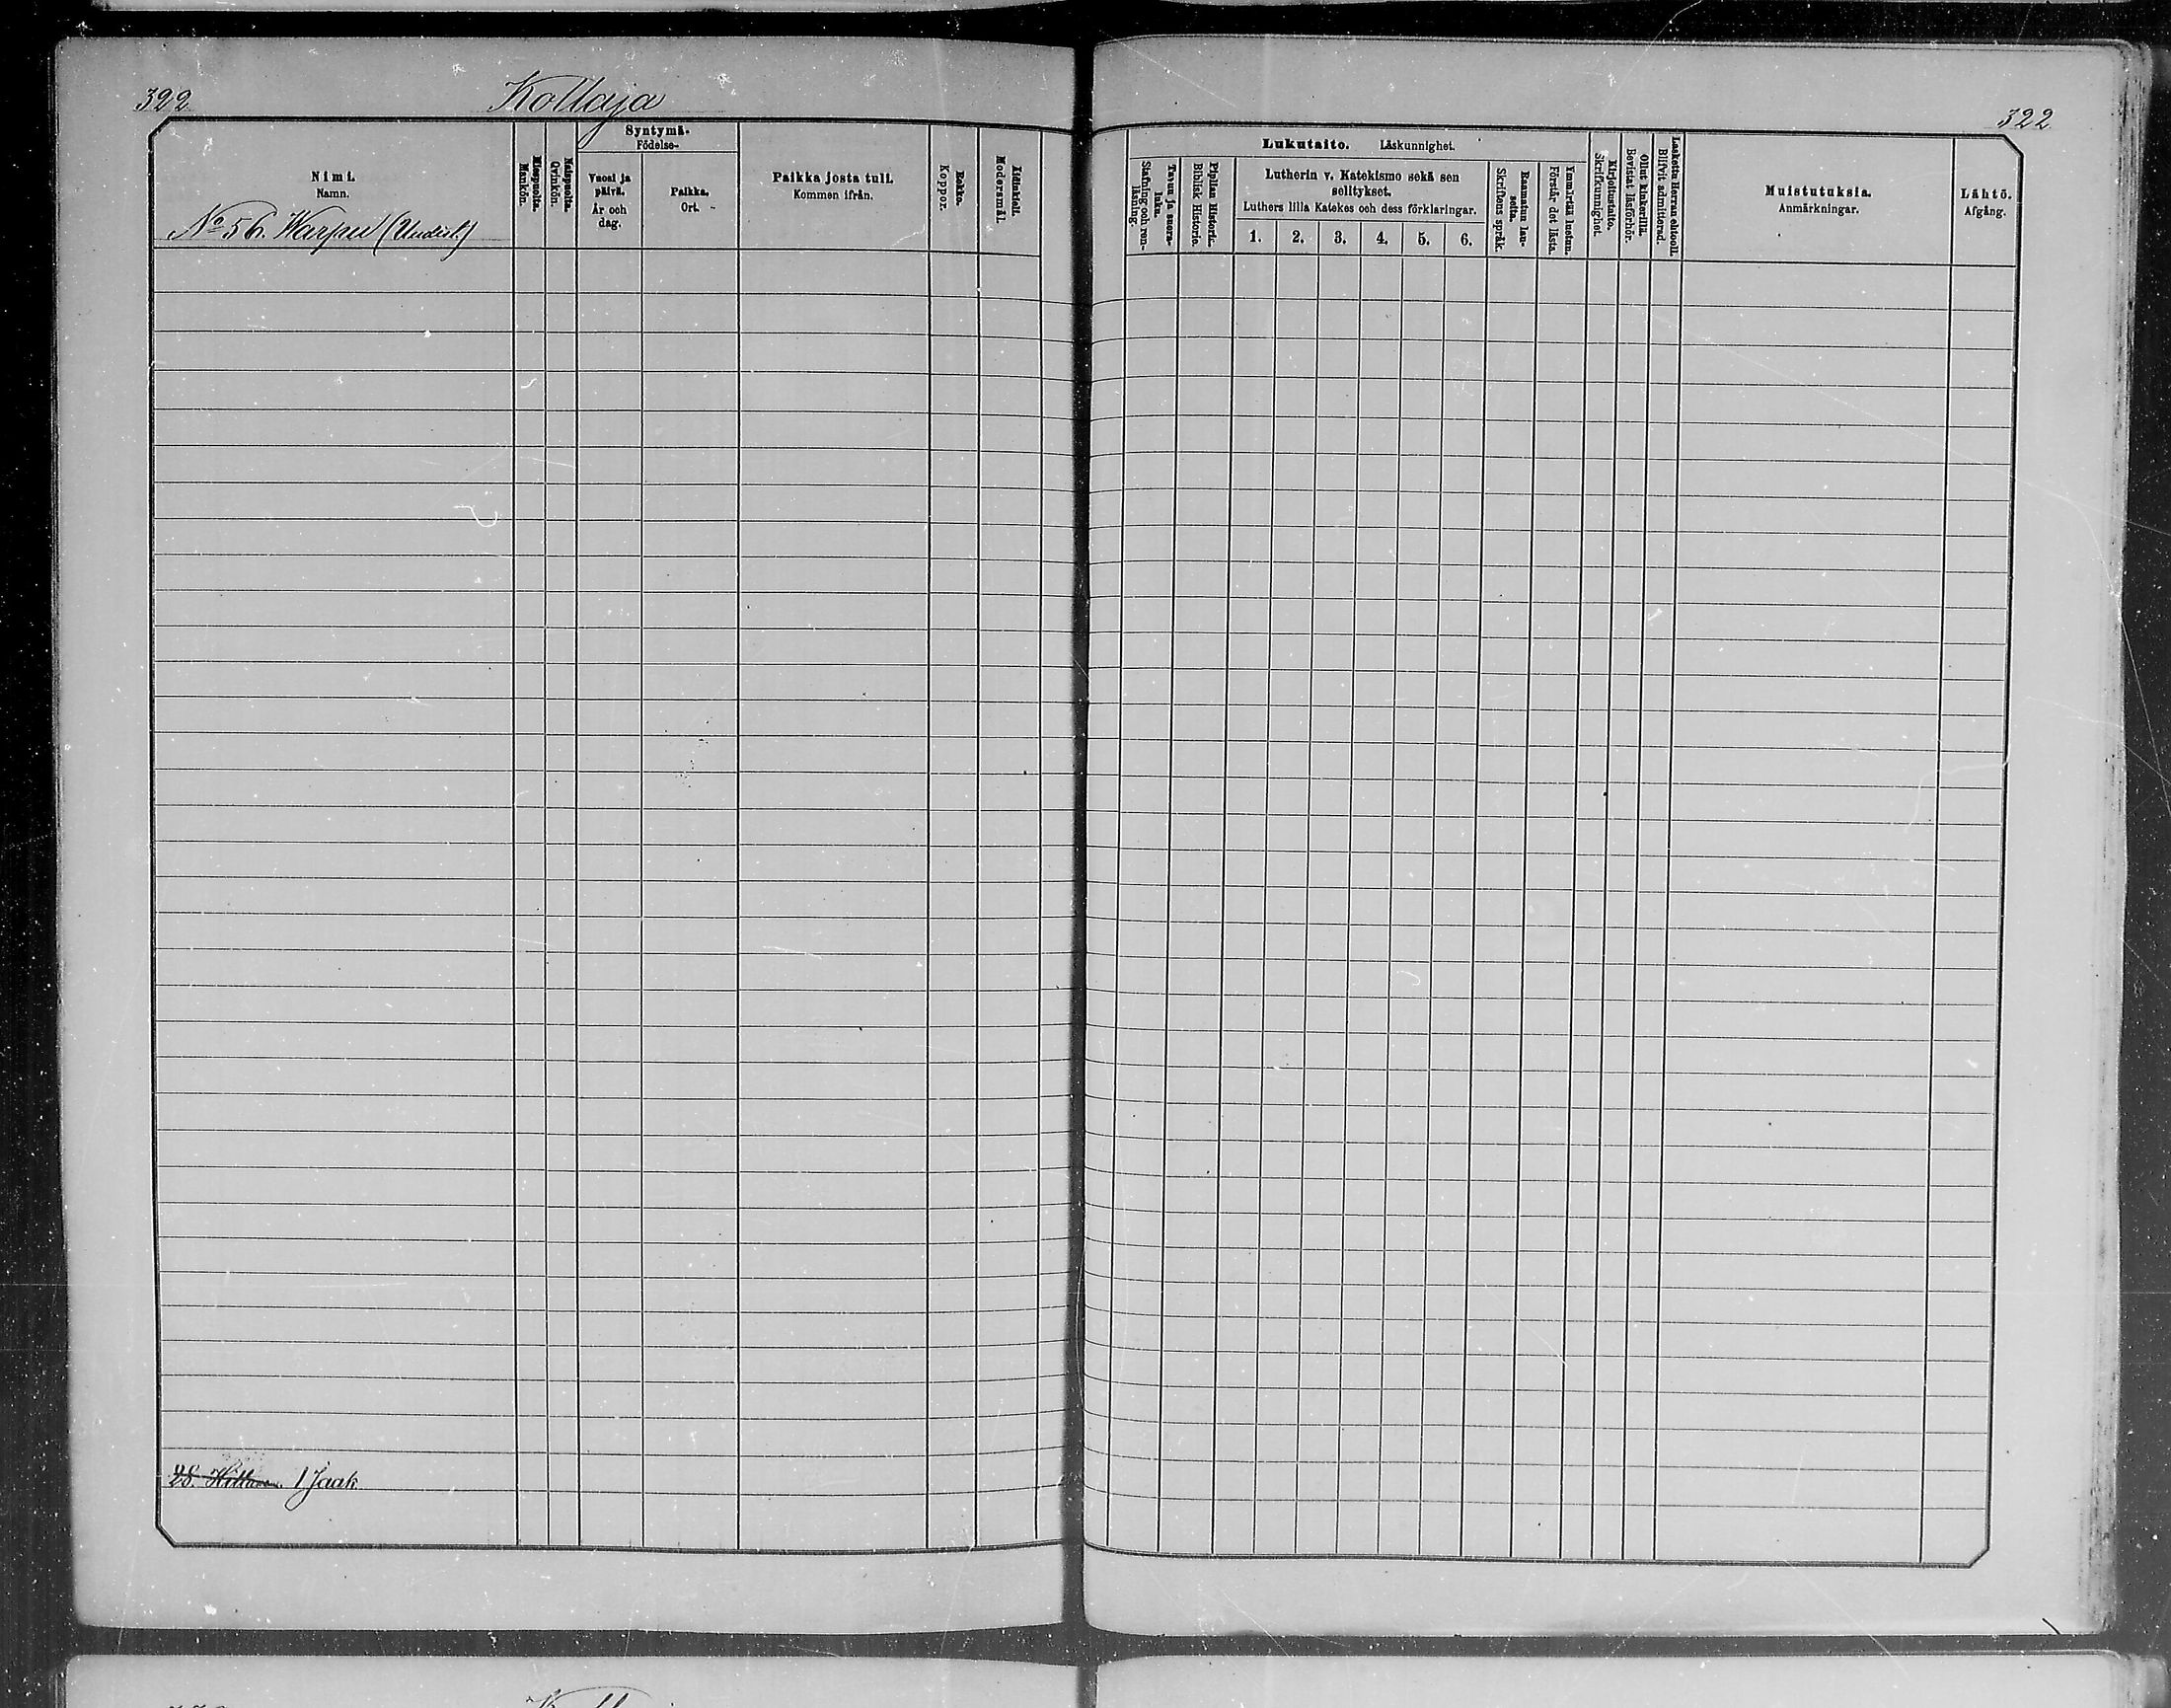 322
Kollaja
322
Nimi.
Namn.
Miespuolta.
Mankön.
Naispuolta.
Qvinkön.
Syntymä.
Födelse-
Vuosi ja päivä.
År och dag.
Paikka.
Ort.
Paikka josta tuli.
Kommen ifrån.
Rokko.
Koppor.
Äidinkieli.
Modersmål.
Lukutaito. Läskunnighet.
Tavuu ja suora-
luku.
Stafning och ren-
läsning.
Piplian Historia.
Biblisk Historie.
Lutherin v. Katekismo sekä sen
selitykset.
Luthers lilla Katekes och dess förklaringar.
1. 2. 3. 4. 5. 6.
Raamatun lau-
seita.
Skriftens språk.
Ymmärtää luetun.
Förstår det lästa.
Kirjoitustaito.
Skrifkunnighet.
Ollut kinkerillä.
Bevistat läsförhör.
Laskettu Herran ehtooll.
Blifvit admitterad.
Muistutuksia.
Anmärkningar.
Lähtö.
Afgång.
No 56. Warpu (Uudist.)
28. 1 Jaak.